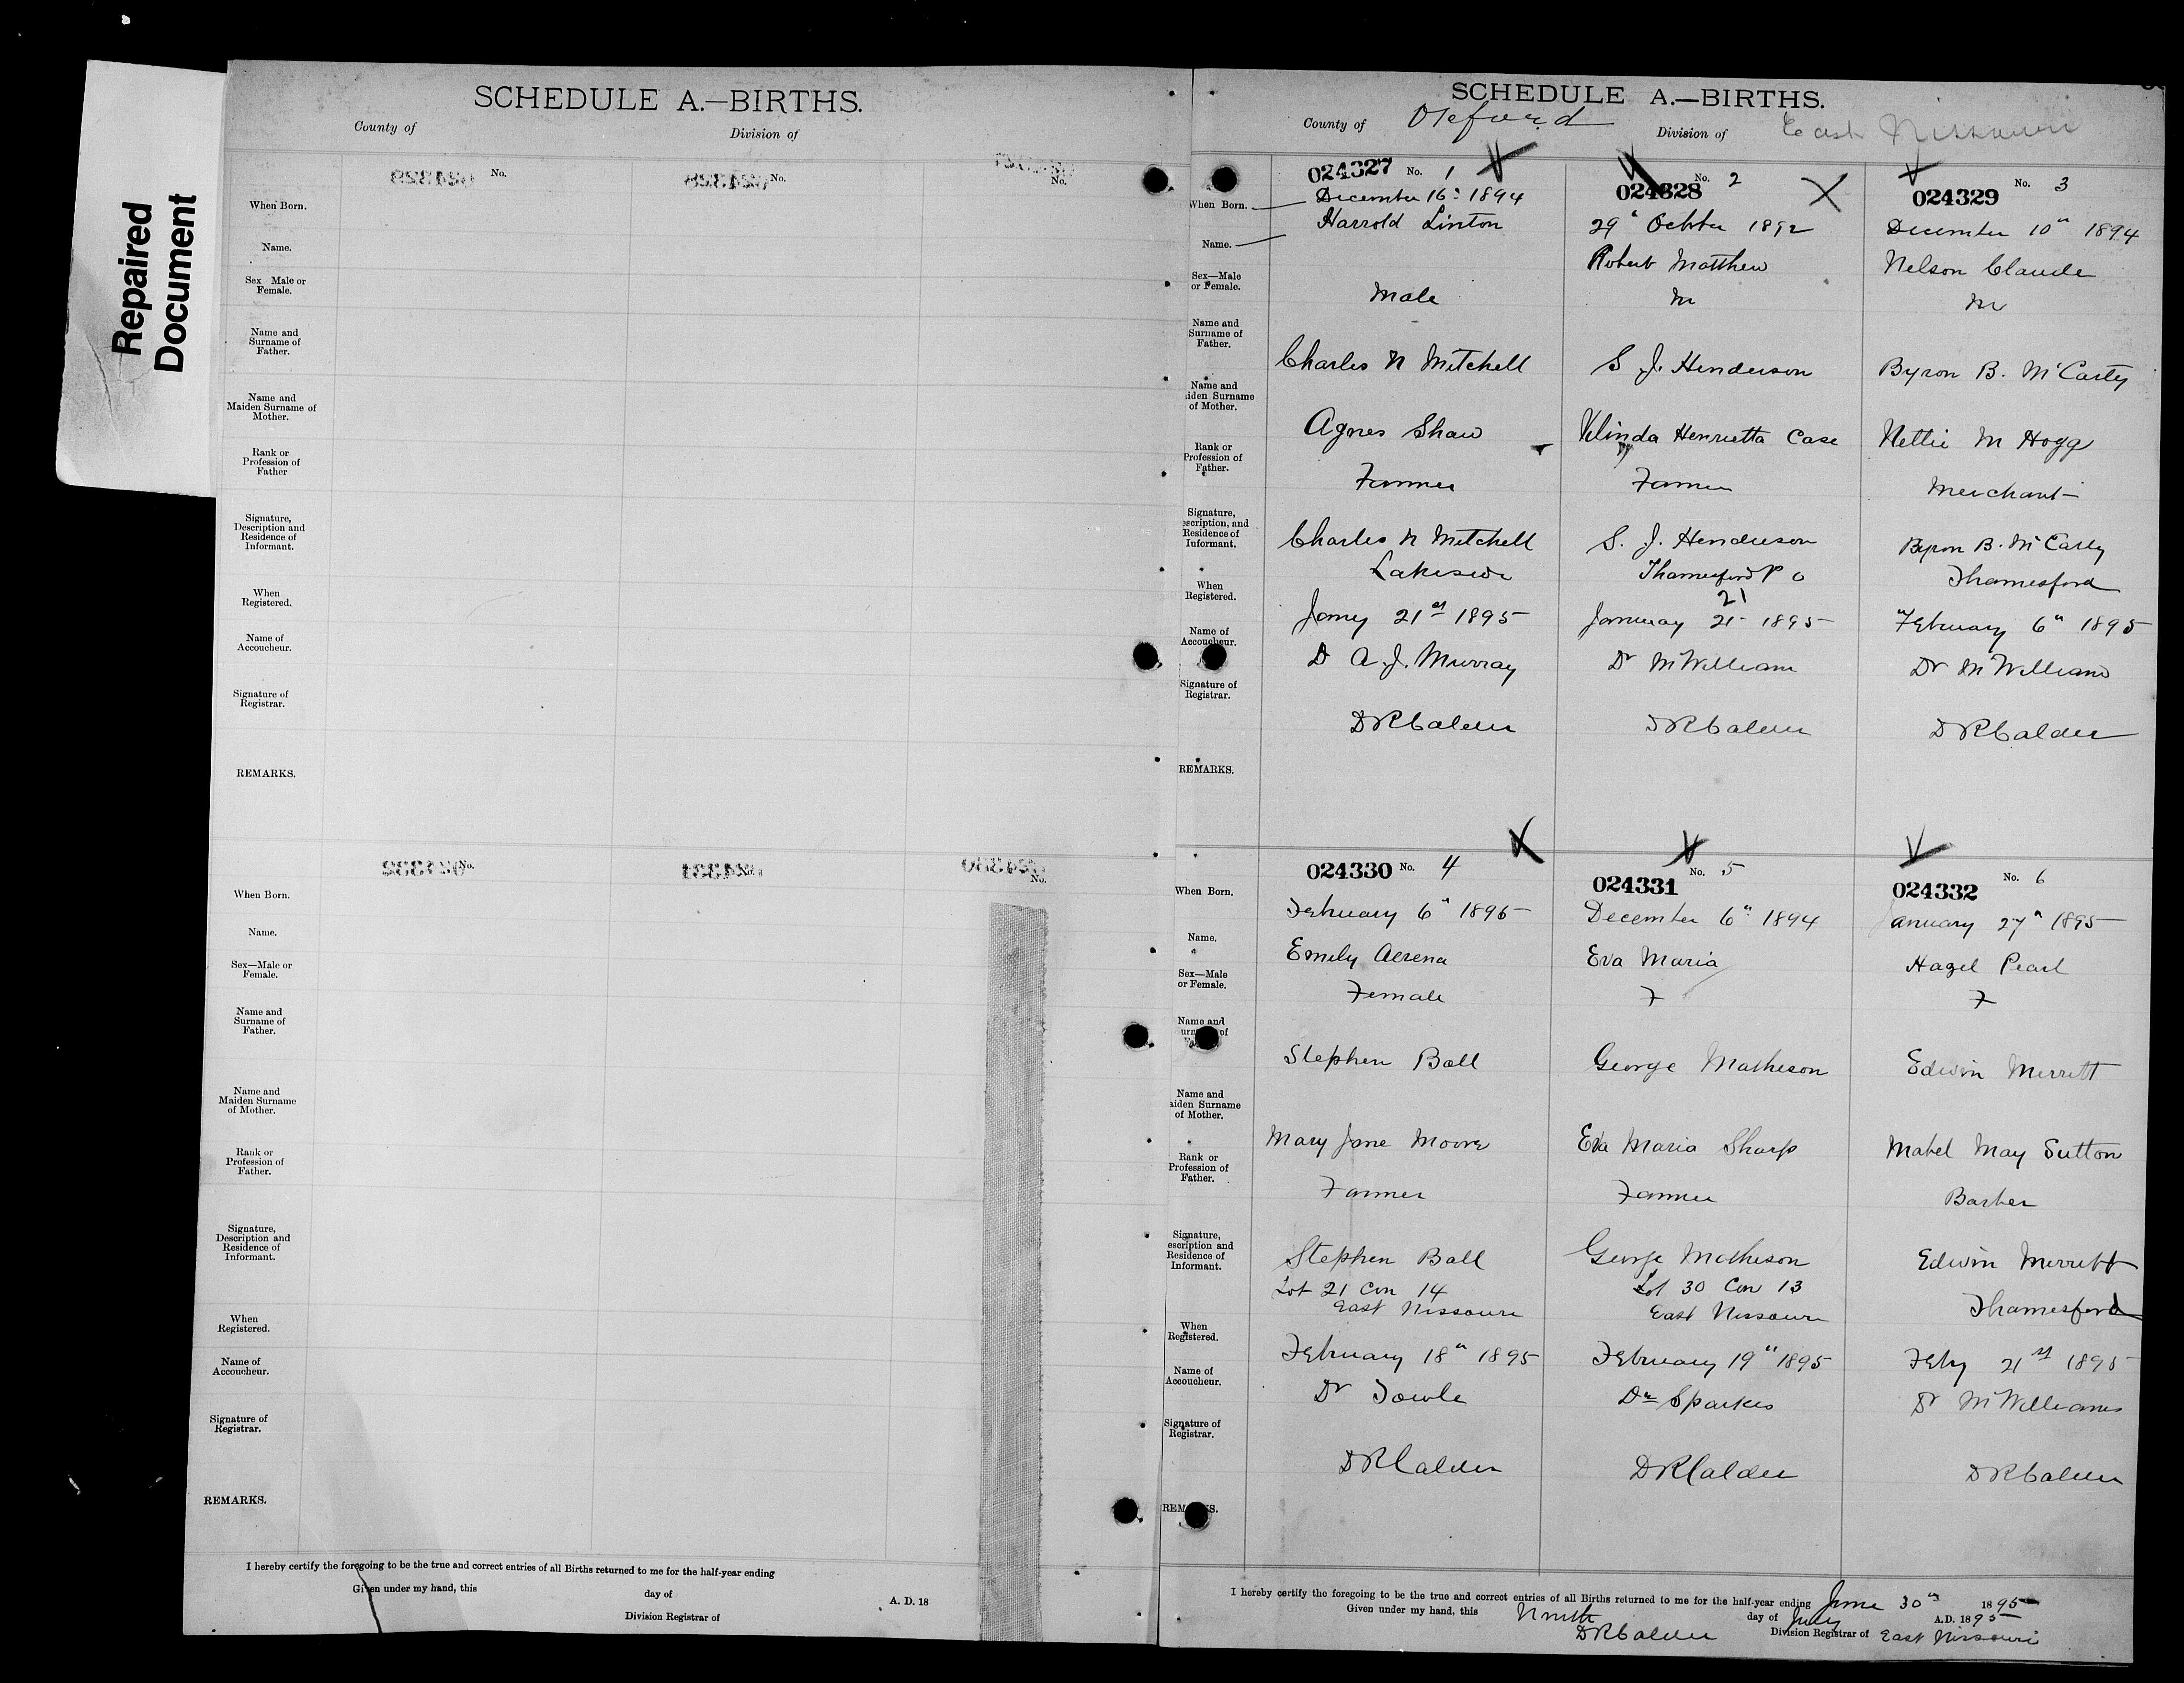 Repaired
Document
SCHEDULE A.—BIRTHS.
County of
Division of
No.
No.
No.
When Born.
Name.
Sex Male or
Female.
Name and
Surname of
Father.
Name and
Maiden Surname of
Mother.
Rank or
Profession of
Father
Signature,
Description and
Residence of
Informant.
When
Registered.
Name of
Accoucheur.
Signature of
Registrar.
REMARKS.
No.
No.
When Born.
Name.
Sex—Male or
Female.
Name and
Surname of
Father.
Name and
Maiden Surname
of Mother.
Rank or
Profession of
Father.
Signature,
Description and
Residence of
Informant.
When
Registered.
Name of
Accoucheur.
Signature of
Registrar.
REMARKS.
I hereby certify the foregoing to be the true and correct entries of all Births returned to me for the half-year ending
Given under my hand, this day of A. D. 18
Division Registrar of
SCHEDULE A.—BIRTHS.
County of Oxford Division of East Nissouri
024327 No. 1 024328 No. 2 024329 No. 3
When Born. December 16" 1894 29" October 1892 December 10" 1894
Name. Harrold Linton Robert Matthew Nelson Claude
Sex—Male
or Female. Male M M
Name and
Surname of
Father. Charles N Mitchell S J. Henderson Byron B. McCarty
Name and
aiden Surname
of Mother. Agnes Shaw Velinda Henrietta Case Nettie M Hogg
Rank or
Profession of
Father. Farmer Farmer Merchant
Signature,
escription, and
Residence of
Informant. Charles N Mitchell S. J. Henderson Byron B. McCarty
Lakeside Thamesford P O Thamesford
21
When
Registered. Jany 21st 1895 January 21 1895 February 6" 1895
Name of
Accoucheur. D A. J. Murray Dr McWilliams Dr McWilliams
Signature of
Registrar. D R Calder D R Calder D R Calder
REMARKS.
024330 No. 4 024331 No. 5 024332 No. 6
When Born. February 6" 1895 December 6" 1894 January 27" 1895
Name. Emily Aerena Eva Maria Hazel Pearl
Sex—Male
or Female. Female F F
Name and
urname of
Father. Stephen Ball George Matheson Edwin Merritt
Name and
aiden Surname
of Mother. Mary Jane Moore Eva Maria Sharp Mabel May Sutton
Rank or
Profession of
Father. Farmer Farmer Barber
Signature,
escription and
Residence of
Informant. Stephen Ball George Matheson Edwin Merritt
Lot 21 Con 14 Lot 30 Con 13 Thamesford
East Nissouri East Nissouri
When
Registered. February 18" 1895 February 19" 1895 Feby 21st 1895
Name of
Accoucheur. Dr Towle Dr Sparkes Dr McWilliams
Signature of
Registrar. D R Calder D R Calder D R Calder
REMARKS.
I hereby certify the foregoing to be the true and correct entries of all Births returned to me for the half-year ending June 30th 1895
Given under my hand, this Ninth day of July A.D. 1895
D R Calder Division Registrar of East Nissouri